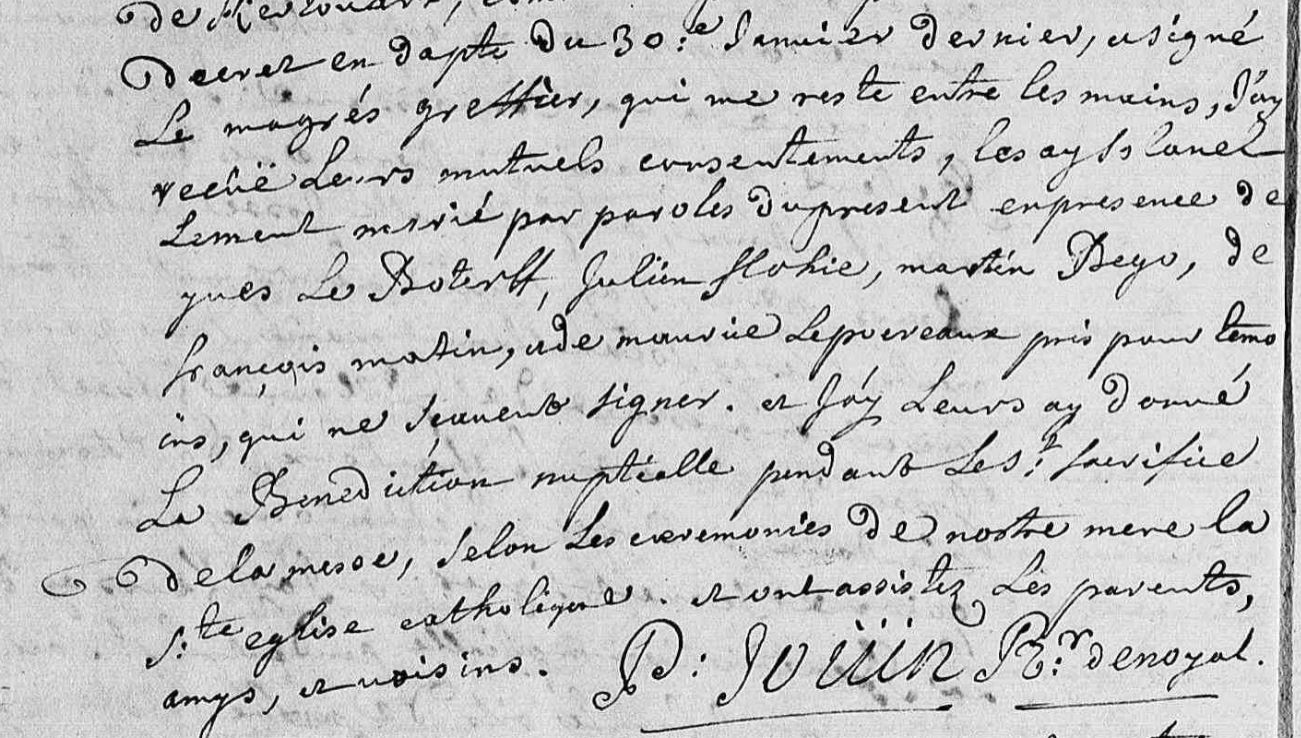 de
Decret en dapte du 30:e Janvier dernier, et signé
Le magrés greffier, qui me reste entre les mains, J'ay
recüë Leurs mutuels consentements, les ay Solanel
Lement marié par paroles du present en presence de
yves Le Boterff, Julien flohic, martin Bego, de
françois matin, et de maurice Lepoureaux pris pour temo
ins, qui ne sçavent signer. et J'áy Leurs ay donné
La Benediction nuptialle pendant Le St: sacrifice
De la messe, selon Les ceremonies de nostre mere la
S:te eglise catholique. et ont assistez Les parents,
amys, et voisins. P: Joüin R:r de noyal.